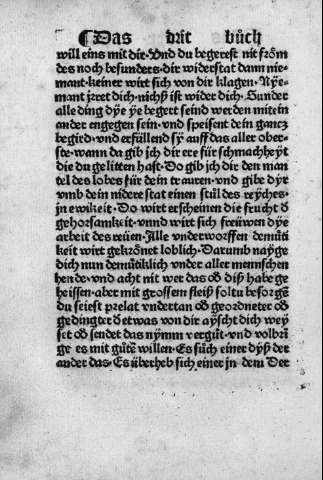 ¶ Das drit bůch
will eins mit dir. Vnd du begerest nit frőm
des noch besunders. dir widerstat dann nie-
mant. keiner wirt sich von dir klagen. Nye-
mant irret dich. nichß ist wider dich. Sunder
alle ding dye ye begert seind werden mitein
ander engegen sein. vnd speisent dein gantz
begird. vnd erfüllend sy auff das aller ober-
ste. wann da gib jch dir ere für schmachheyt
die du gelitten hast. Do gib jch dir den man
tel des lobes für dein trauren. vnd gibe dyr
vmb dein niderestat einen stůl des reyches.
in ewikeit. Do wirt erscheinen die frucht ď
gehorsamkeit. vnnd wirt sich freüwen dye
arbeit des reüen. Alle vnderworffen demüti
keit wirt gekrőnet loblich. Darumb nayge
dich nun demütiklich vnder aller mennschen
hende. vnd acht nit wer das oď diß habe ge
heissen. aber mit grossem fleiß soltu besorgē
du seiest prelat vndertan oď geordneter oď
gedingter ď etwas von dir ayscht dich wey
set oď sendet das nymm vergůt. vnd volbrī
ge es mit gůtē willen. Es sůch einer dyß der
ander das. Es überheb sich einer in dem Der